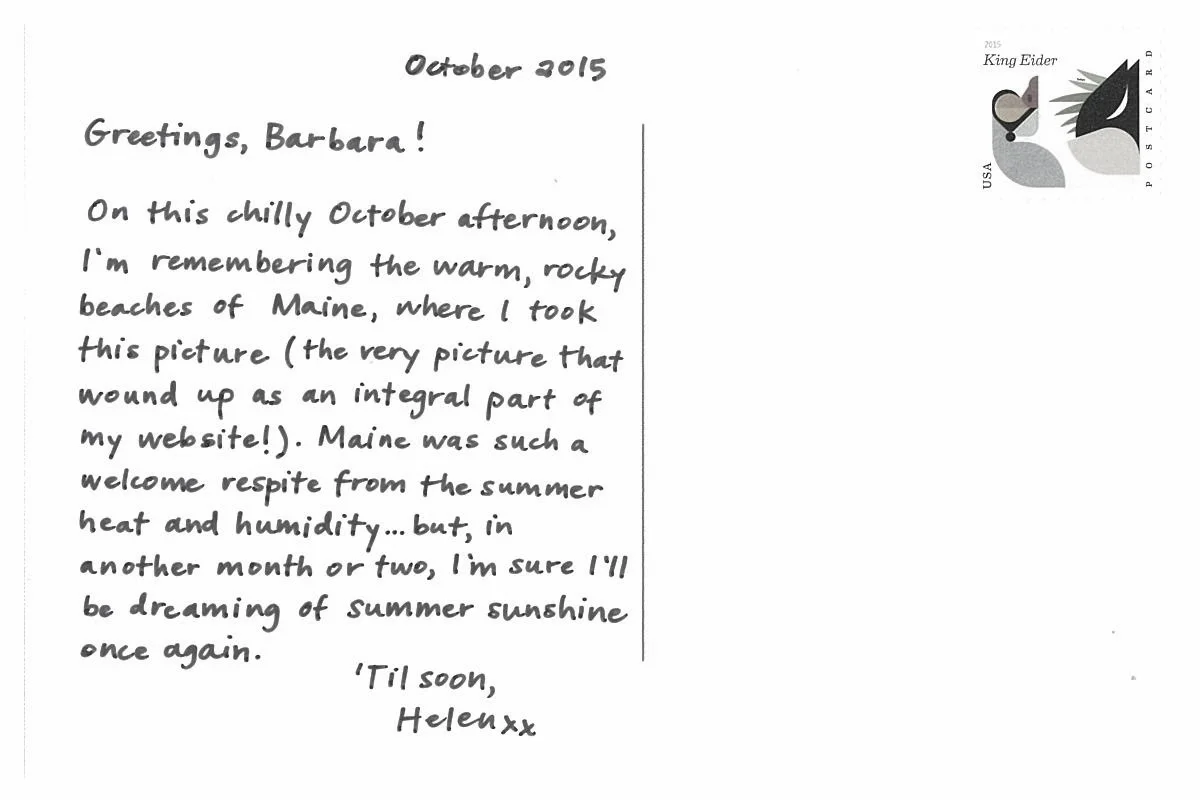 October 2015
Greetings, Barbara!
On this chilly October afternoon,
I'm remembering the warm, rocky
beaches of Maine, where I took
this picture (the very picture that
wound up as an integral part of
my website!). Maine was such a
welcome respite from the summer
heat and humidity... but, in
another month or two, I'm sure I'll
be dreaming of summer sunshine
once again.
'Til soon,
Helen xx
2015
King Eider
USA
POSTCARD